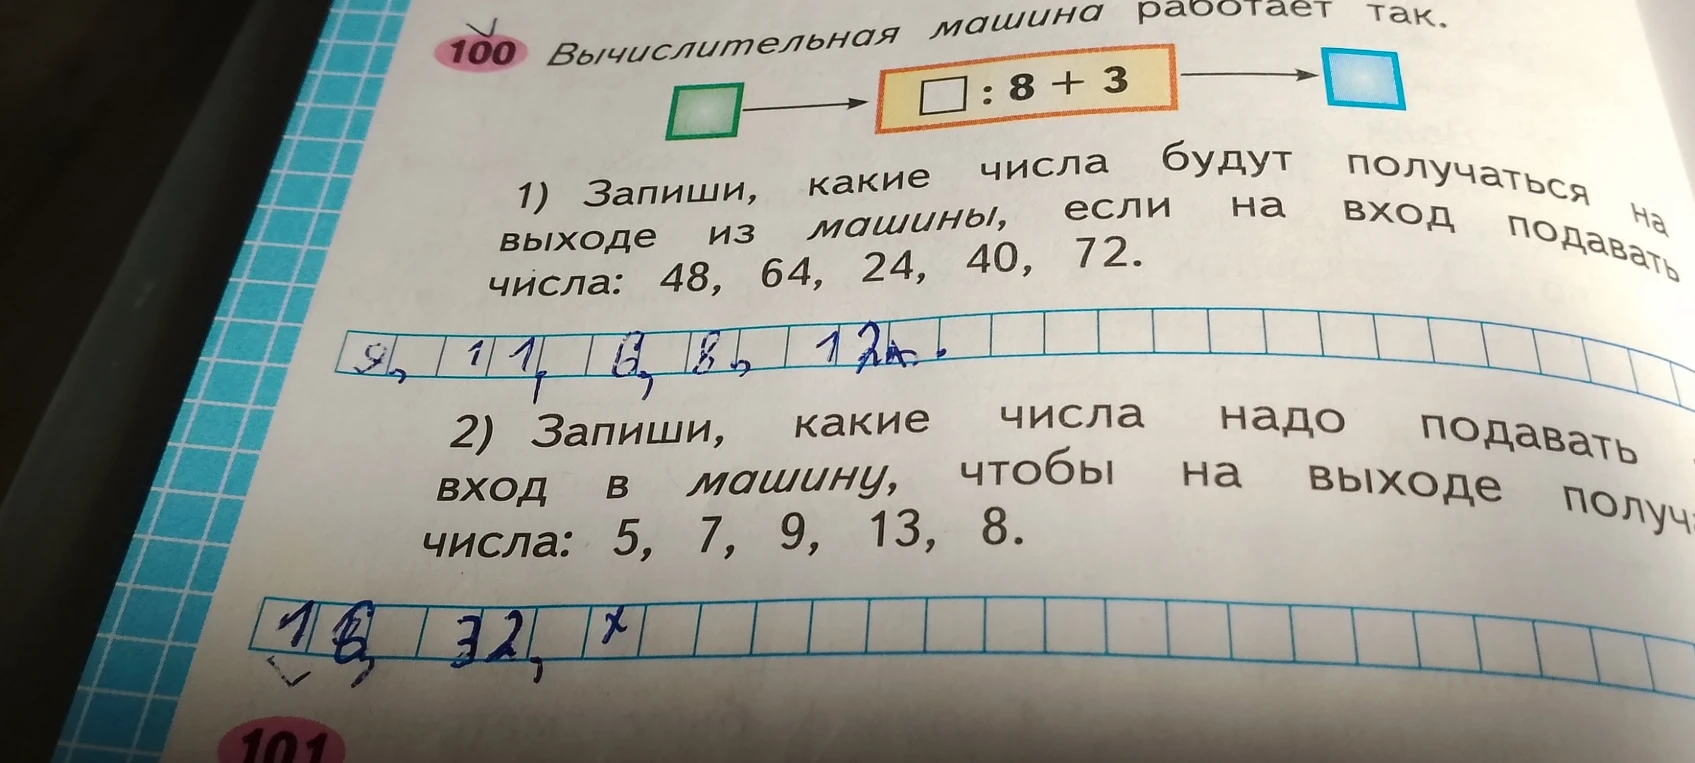 100 Вычислительная машина работает так.
□ : 8 + 3
1) Запиши, какие числа будут получаться на
выходе из машины, если на вход подавать
числа: 48, 64, 24, 40, 72.
9, 11, 6, 8, 12.
2) Запиши, какие числа надо подавать
вход в машину, чтобы на выходе получ
числа: 5, 7, 9, 13, 8.
16, 32,
101